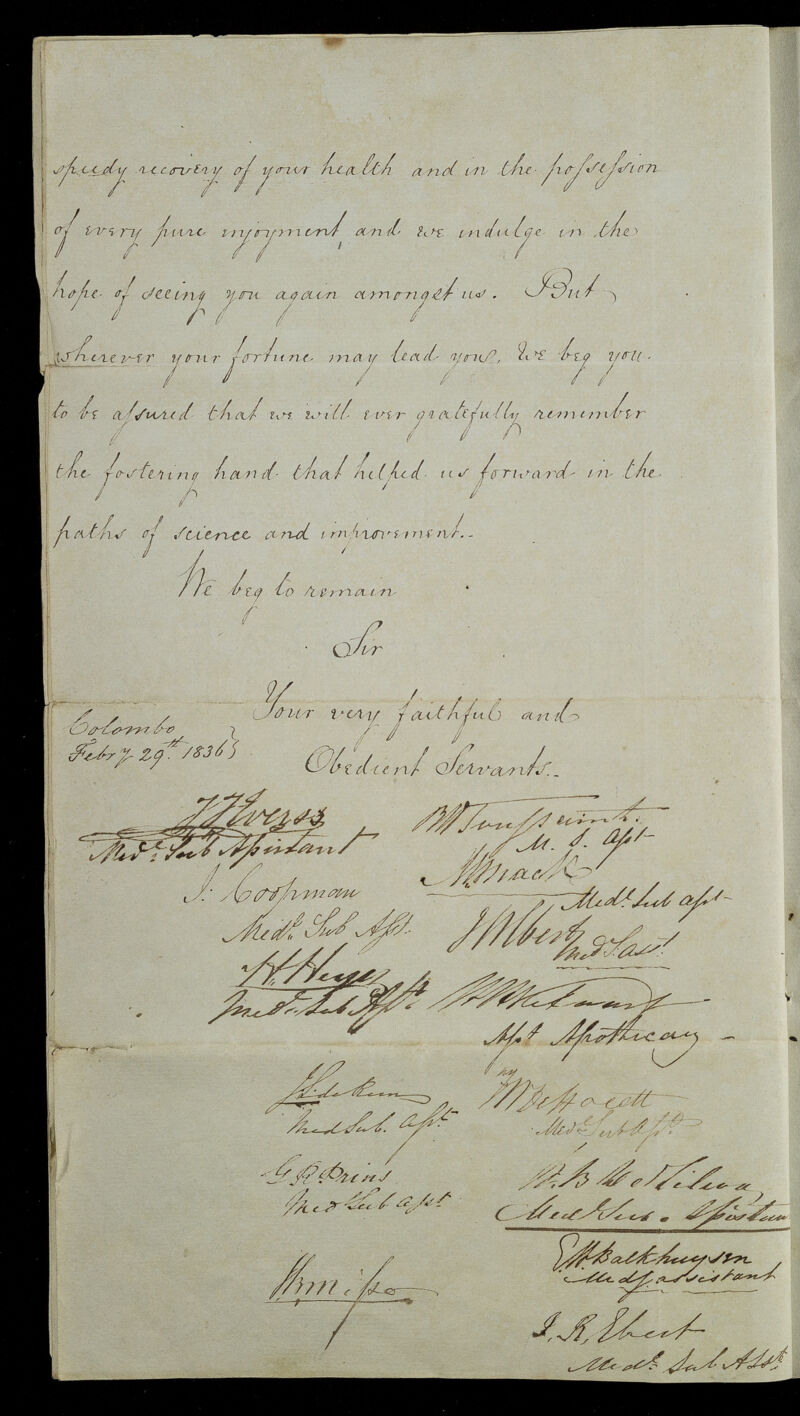 speedy recovery of your health and in the possession
of every pure enjoyment, and we indulge in the
hope of seeing you again amongst us. But
wherever your fortune may lead you, We beg you
to be assured that we will ever gratefully remember
the fostering hand that helped us forward in the
paths of science and improvement.-
We beg to remain
Sir
Your very faithful and
Obedient Servants.-
Colombo
Febry 29th. 1836
Medl. Sub Assistant
J. Coopman
Medl. Sub Asst.
H. Heyer
Medl. Sub Asst.
Med Sub. Asst.
G R Prins
Medl Sub Asst
B W Toussaint.
M. S. Asst
Mack
Medl. Sub Asst
Albert
Med S. asst.
Asst Apothecary -
Medl. Sub Asst.
Medl. Sub. Assistant
E H Balkhuysen
Med S assistant
J. R. Ebert
Medl. Sub Asst.